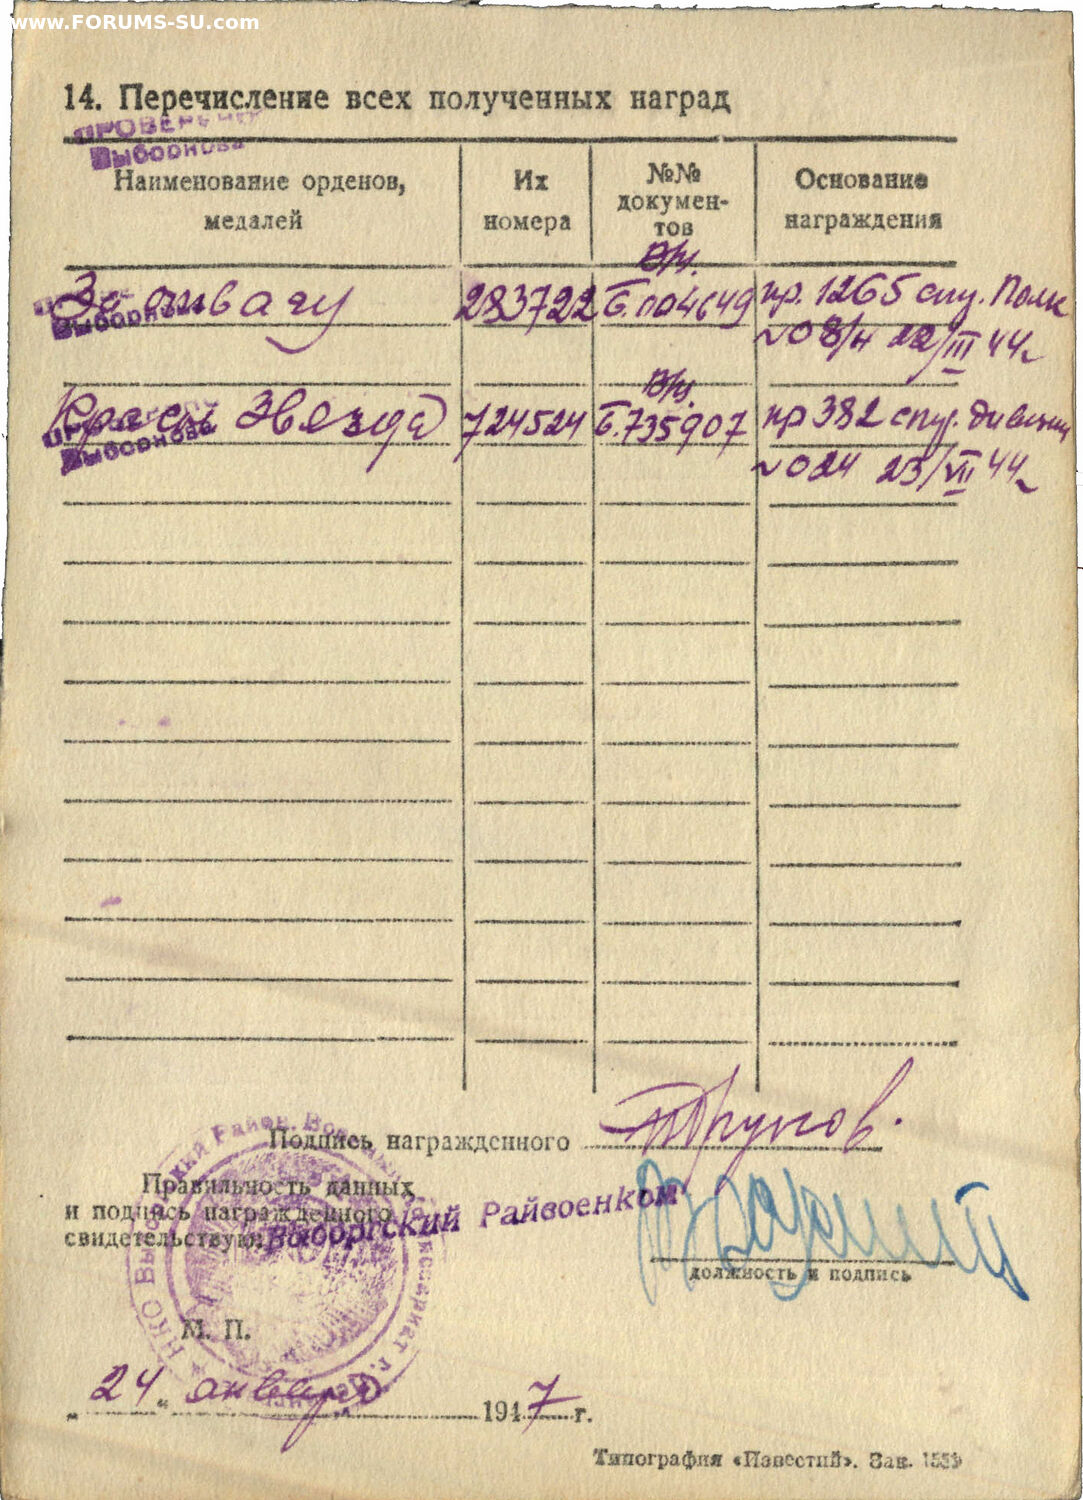 www.FORUMS-SU.com
14. Перечисление всех полученных наград
ПРОВЕРЕНО
Выборнова
Наименование орденов, медалей
Их номера
№№ докумен-тов
Основание награждения
За отвагу
283722
В/ч.
Б.004649
пр. 1265 стр. Полк
№ 08/н 22/III 44 г
Выборнова
Красн Звезда
724524
В/ч.
Б.735907
пр 382 стр. дивизии
№ 024 23/VII 44 г
Выборнова
Подпись награжденного
Трупов.
Правильность данных
и подпись награжденного
свидетельствую:
Выборгский Райвоенком
должность и подпись
НКО Выборгский Район. Военный Комиссариат г.
М. П.
„24“ января 1947 г.
Типография «Известий». Зак.